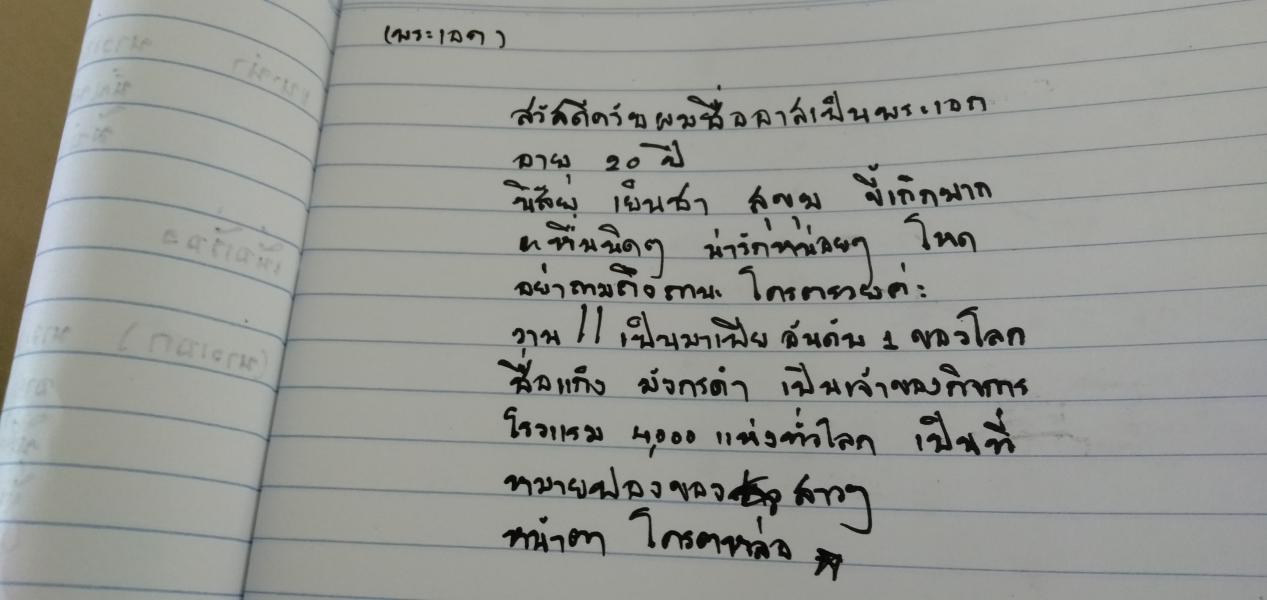 (พระเอก)
สวัสดีครับผมชื่ออาสเป็นพระเอก
อายุ 20 ปี
นิสัย เย็นชา สุขุม ขี้เก๊กมาก
หื่นนิดๆ น่ารักหน่อยๆ โหด
อย่าถามถึงถานะ โครตรวยค่ะ
งาน // เป็นมาเฟีย อันดับ 1 ของโลก
ชื่อแก๊ง มังกรดำ เป็นเจ้าของกิจการ
โรงแรม 4,000 แห่งทั่วโลก เป็นที่
หมายปองของ สาวๆ
หน้าตา โครตหล่อ